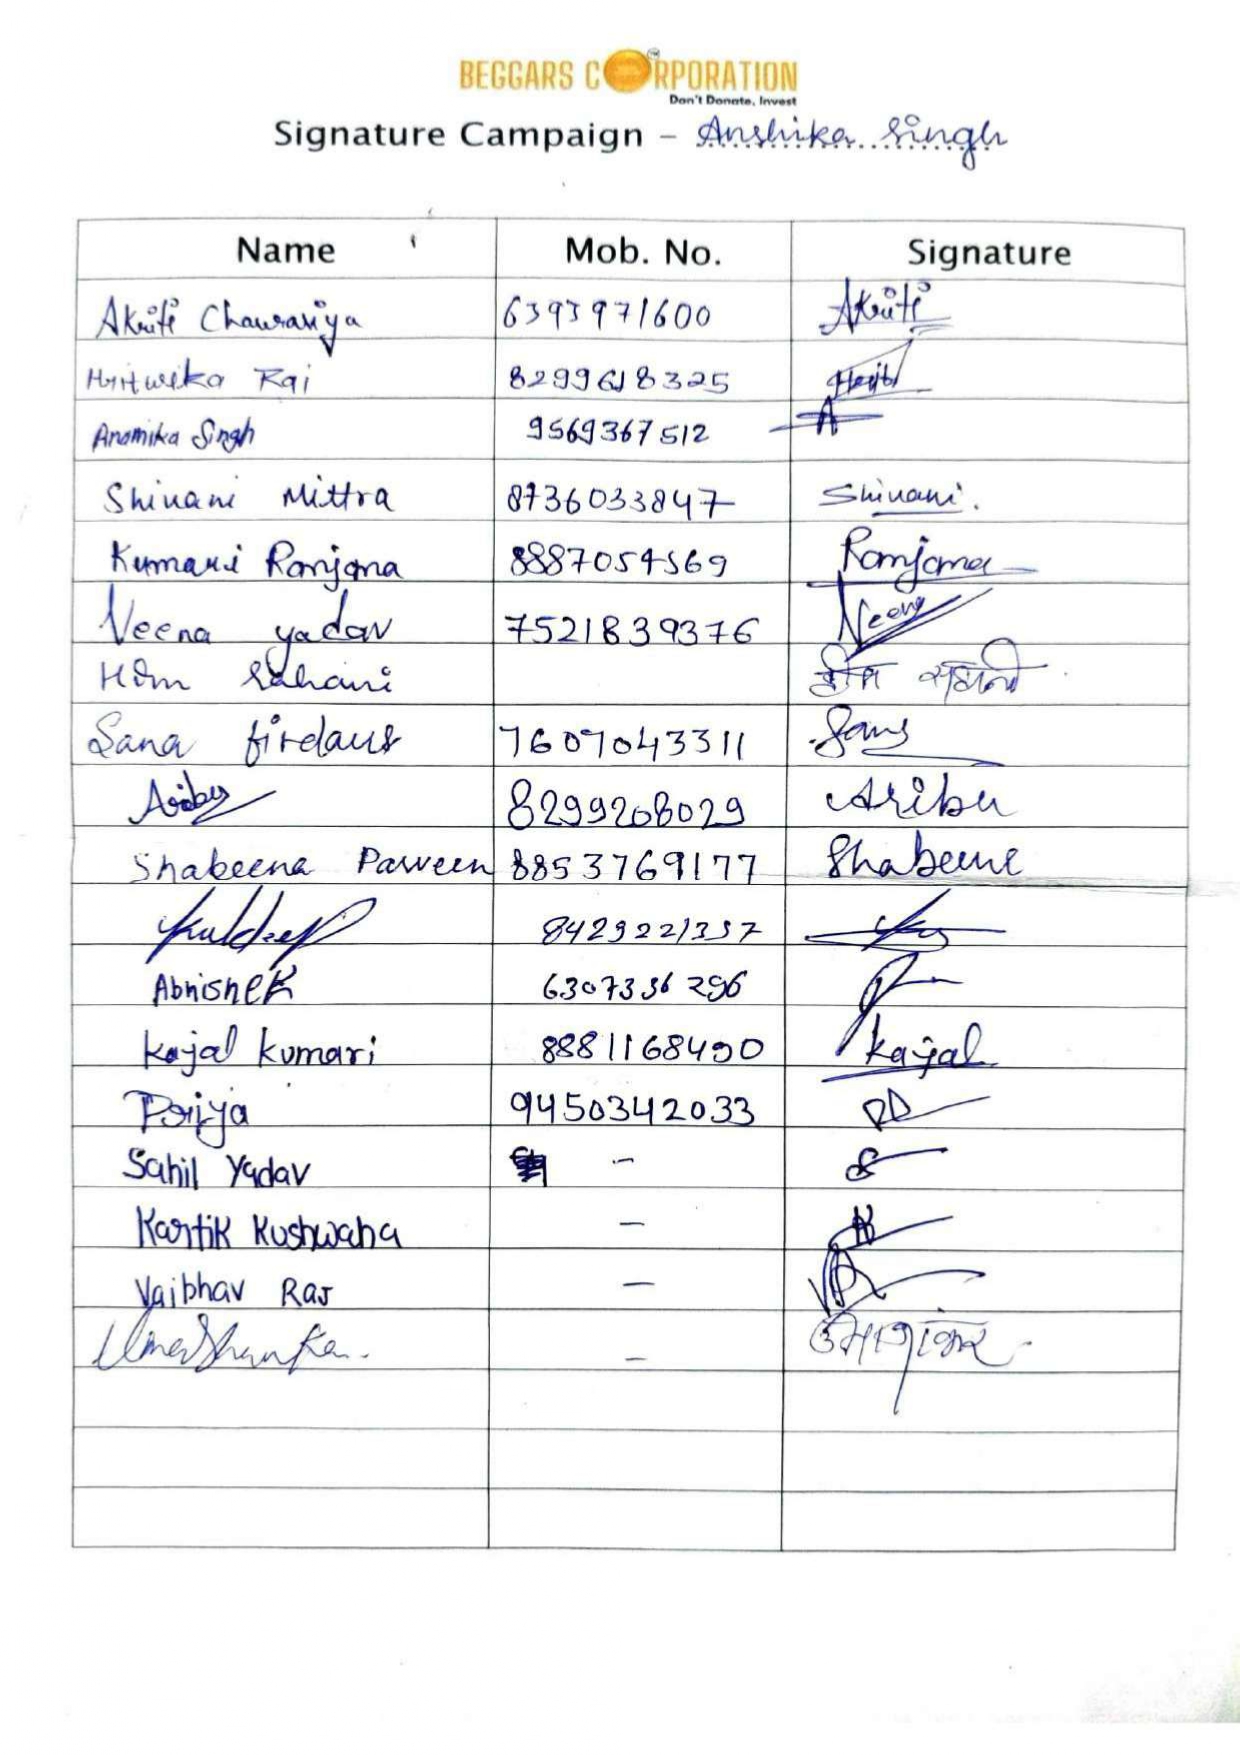 BEGGARS CORPORATION
Don't Donate, Invest
Signature Campaign – Anshika Singh
Name Mob. No. Signature
Akriti Chaurasiya 6393971600 Akriti
Hritwika Rai 8299618325
Anamika Singh 9569367512 A
Shivani Mittra 8736033847 Shivani.
Kumari Ranjana 8887054569 Ranjana
Neena yadav 7521839376 Neena
Hom Sahani सहानी
Sana firdaus 7607043311 Sana
Ariba 8299208029 Ariba
Shabeena Parveen 8853769177 Shabeene
Kuldeep 8429221337
Abhishek 6307336296
Kajal Kumari 8881168490 Kajal
Priya 9450342033 PD
Sahil Yadav – S
Kartik Kushwaha – K
Vaibhav Raj –
Umashankar. – उमाशंकर